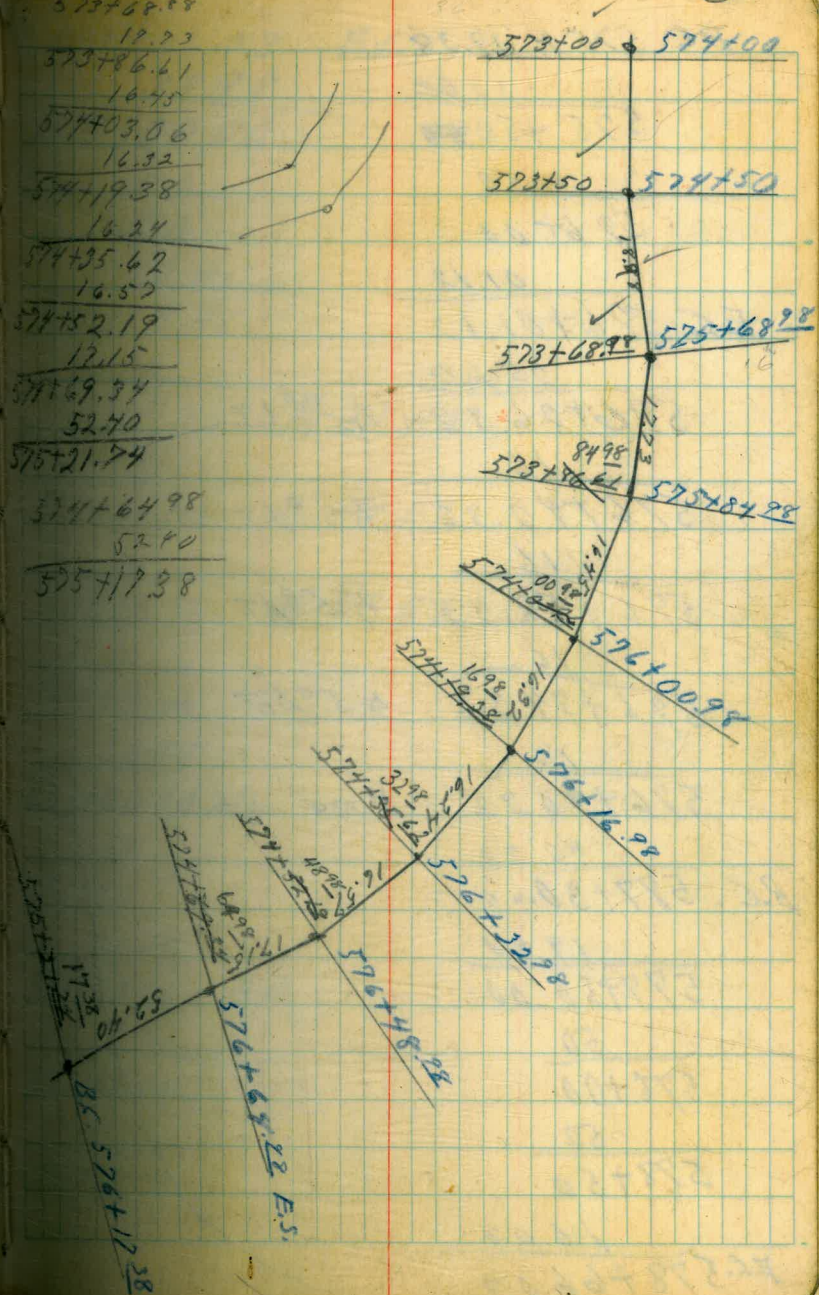 573+68.88
17.73
573+86.61
16.45
574+03.06
16.32
574+19.38
16.24
574+35.62
16.57
574+52.19
17.15
574+69.34
52.40
575+21.74
574+64 98
52 40
575+17 38
573+00 574+00
573+50 574+50
573+68.98 575+68 98
17.73
84 98
573+86 61 575+84 98
16.45
00 98
574+ 576+00.98
16.32
16 98
574+19.38 576+16.98
16.24
32 98
574+35 62 576+32.98
16.57
48 98
576+48.98
17.15
64 98
576+64.98 E.S.
52.40
17 38
575+21.74
576+17 38